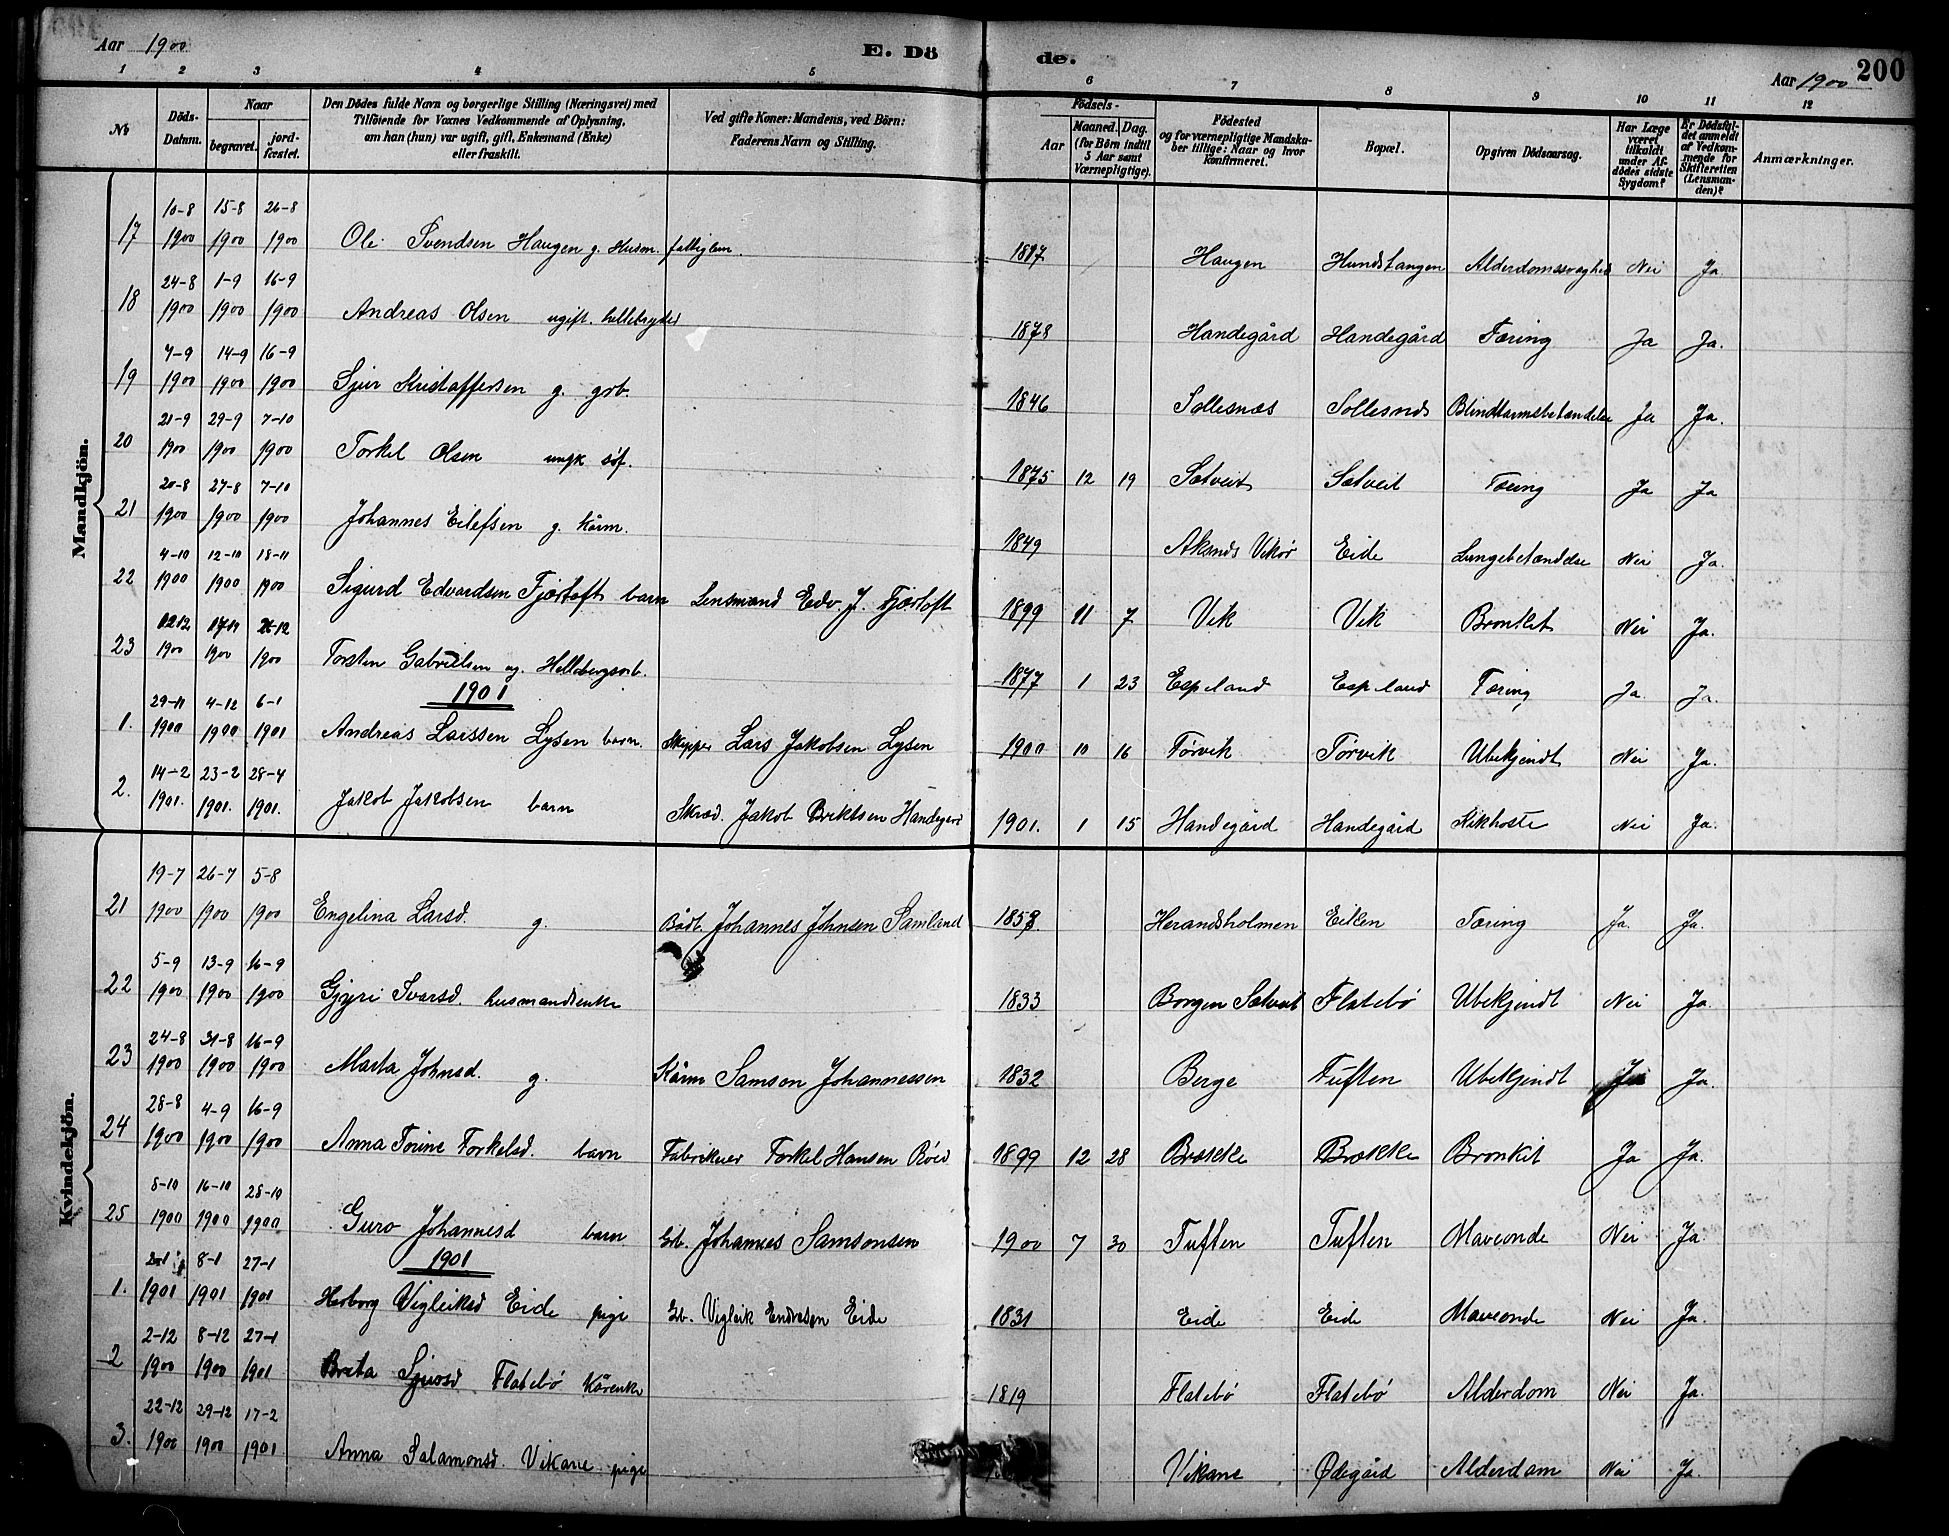 Aar 1900 E. Dö de. Aar 1900 200
1 2 3 4 5 6 7 8 9 10 11 12
No Döds-Datum. Naar begravet. jordfæstet. Den Dödes fulde Navn og borgerlige Stilling (Næringsvei) med Tilföiende for Voxnes Vedkommende af Oplysning, om han (hun) var ugift, gift, Enkemand (Enke) eller fraskilt. Ved gifte Koner: Mandens, ved Börn: Faderens Navn og Stilling. Födsels- Aar Maaned. Dag. (for Börn indtil 5 Aar samt Værnepligtige). Födested og for værnepligtige Mandskaber tillige: Naar og hvor konfirmeret. Bopæl. Opgiven Dödsaarsag. Har Læge været tilkaldt under Afdödes sidste Sygdom? Er Dödsfaldet anmeldt af Vedkommende for Skifteretten (Lensmanden)? Anmærkninger.
Mandkjön.
17 10-8 1900 15-8 1900 26-8 1900 Ole Svendsen Haugen g. Husm. fattiglem. 1817 Haugen Hundstangen Alderdomssvaghed Nei Ja
18 24-8 1900 1-9 1900 16-9 1900 Andreas Olsen ugift. hellebryder 1878 Handegård Handegård Tæring Ja Ja.
19 7-9 1900 14-9 1900 16-9 1900 Sjur Kristaffersen g. grb. 1846 Sollesnæs Sollesnæs Blindtarmsbetændelse Ja Ja.
20 21-9 1900 29-9 1900 7-10 1900 Torkel Olsen ungk søf. 1875 12 19 Sætveit Sætveit Tæring Ja Ja
21 20-8 1900 27-8 1900 7-10 1900 Johannes Eilefsen g. kårm. 1849 Aksnæs Vikør Eide Lungebetændelse Nei Ja.
22 4-10 1900 12-10 1900 18-11 1900 Sigurd Edvardsen Fjørtoft barn Lensmand Edv. J. Fjørtoft 1899 11 7 Vik Vik Bronkit Nei Ja.
23 1212 1900 1900 1900 Torsten Gabrielsen ug. Hellebergsarb. 1877 1 23 Espeland Espeland Tæring Ja Ja.
1901
1. 29-11 1900 4-12 1900 6-1 1901 Andreas Larssen Lysen barn. Skipper Lars Jakobsen Lysen 1900 10 16 Tørvik Tørvik Ubekjendt Nei Ja.
2. 14-2 1901. 23-2 1901. 28-4 1901. Jakob Jakobsen barn Skræd. Jakob Briktsen Handegård 1901. 1 15 Handegård Handegård Kikhoste Nei Ja.
Kvindekjön.
21 19-7 1900 26-7 1900 5-8 1900 Engelina Larsd. g. Bådb. Johannes Johnsen Samland 1858 Herandsholmen Eiken Tæring Ja. Ja.
22 5-9 1900 13-9 1900 16-9 1900 Gjyri Ivarsd. husmandsenke 1833 Borgen Sætveit Flatebø Ubekjendt Nei Ja.
23 24-8 1900 31-8 1900 16-9 1900 Marta Johnsd. g. Kårm Samson Johannessen 1832 Berge Tuften Ubekjendt Ja Ja.
24 28-8 1900 4-9 1900 16-9 1900 Anna Torine Torkelsd. barn Fabrikeier Torkel Hansen 1899 12 28 Brække Brække Bronkit Ja Ja.
25 8-10 1900 16-10 1900 28-10 1900 Guro Johannesd barn Gb. Johannes Samsonsen 1900 7 30 Tuften Tuften Maveonde Nei Ja.
1901
1. 1901 8-1 1901 27-1 1901 Herborg Vigleiksd Eide pige Gb. Vigleik Endresen Eide 1831 Eide Eide Maveonde Nei Ja.
2 2-12 1900 8-12 1900 27-1 1901 Brita Sjursd Flatebø kårenke 1819 Flatebø Flatebø Alderdom Nei Ja.
3. 22-12 1900 29-12 1900 17-2 1901 Anna Salamonsd. Vikane pige Vikane Ødegård Alderdom Nei Ja.